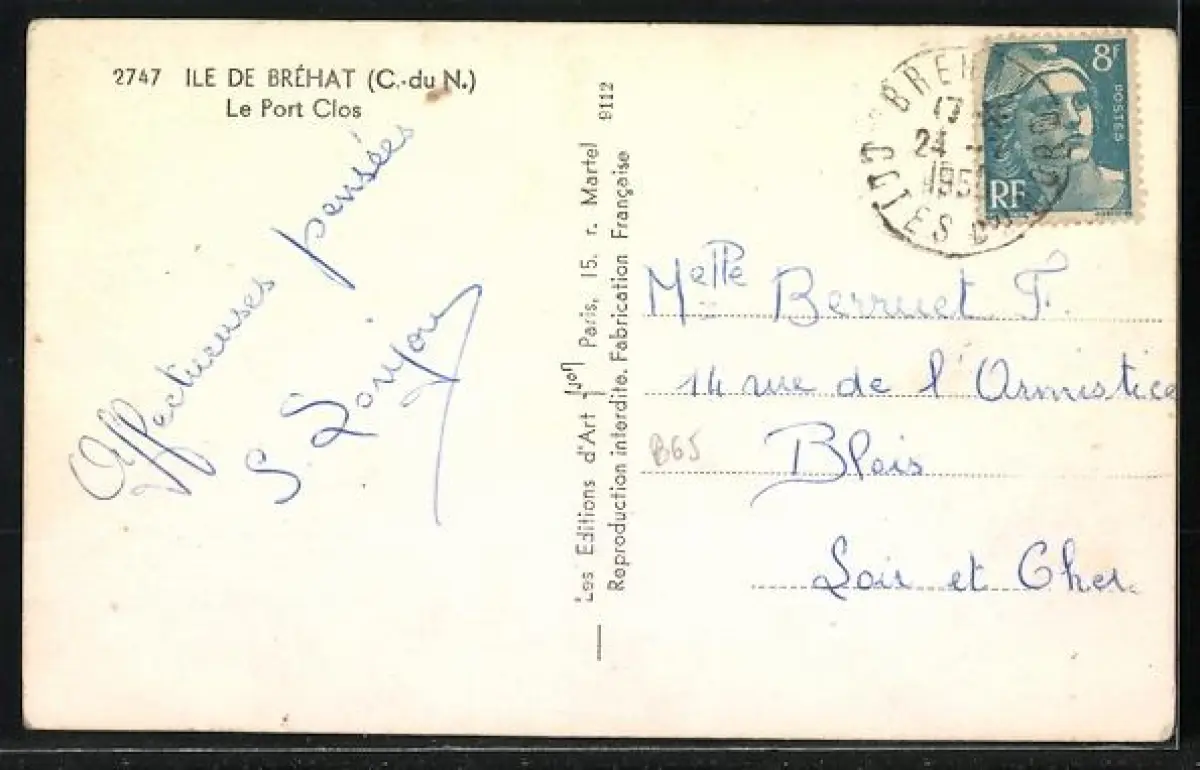 2747 ILE DE BRÉHAT (C.-du N.)
Le Port Clos
Affectueuses pensées
S.
Les Editions d'Art Paris, 15. r. Martel 9112
Reproduction interdite. Fabrication Française
BREH
17
24
195
COTES DU NORD
8F
POSTES
RF
Melle Berruet F.
14 rue de l'Armistice
B65
Blois
Loir et Cher.